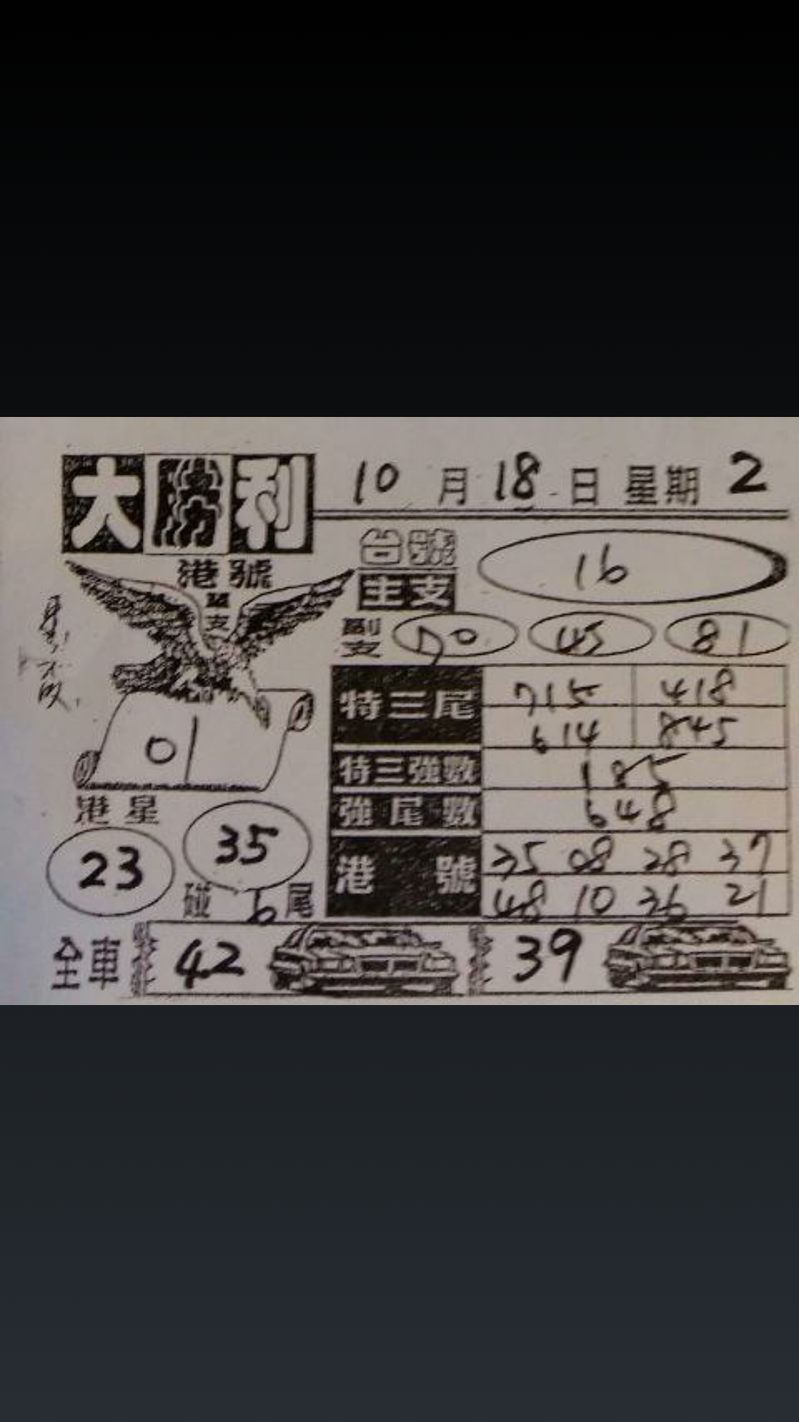 大勝利 10月18日星期2
港號
單支
台號 16
主支
副支 70 45 81
01
特三尾 715 418
614 845
特三強數 185
強尾數 648
港星
23 35
碰6尾
港號 35 08 28 37
48 10 36 21
全車 42 39